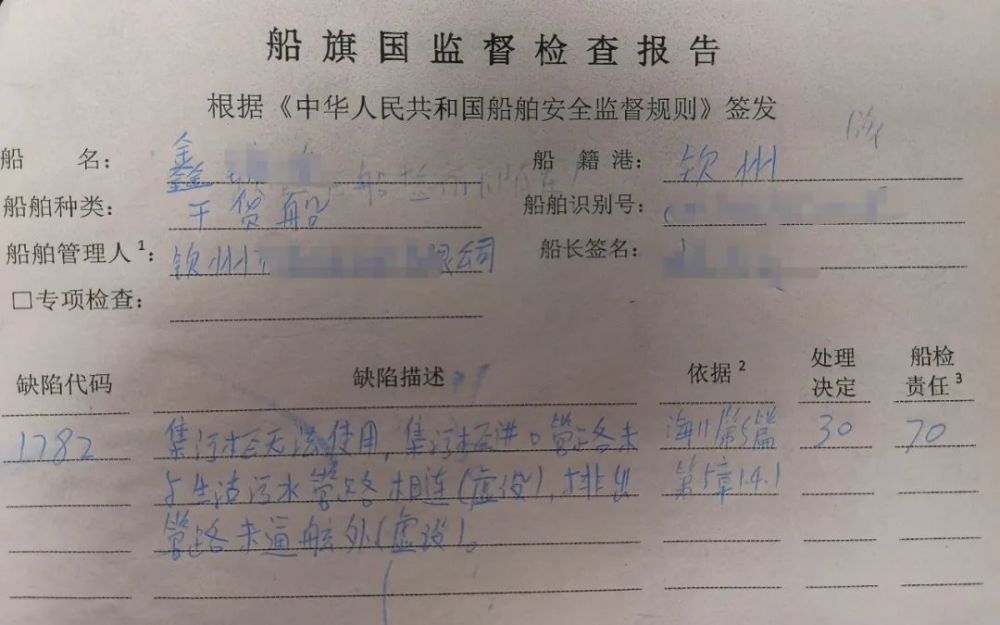 船旗国监督检查报告
根据《中华人民共和国船舶安全监督规则》签发
船 名： 鑫 船籍港： 钦州
船舶种类： 干货船 船舶识别号：
船舶管理人1： 钦州 限公司 船长签名：
□专项检查：
缺陷代码 缺陷描述 依据2 处理决定 船检责任3
1782 集污柜无法使用，集污柜进口管路未 海11第5篇 30 70
与生活污水管路相连（虚设），排出 第5章1.4.1
管路未通舷外（虚设）。